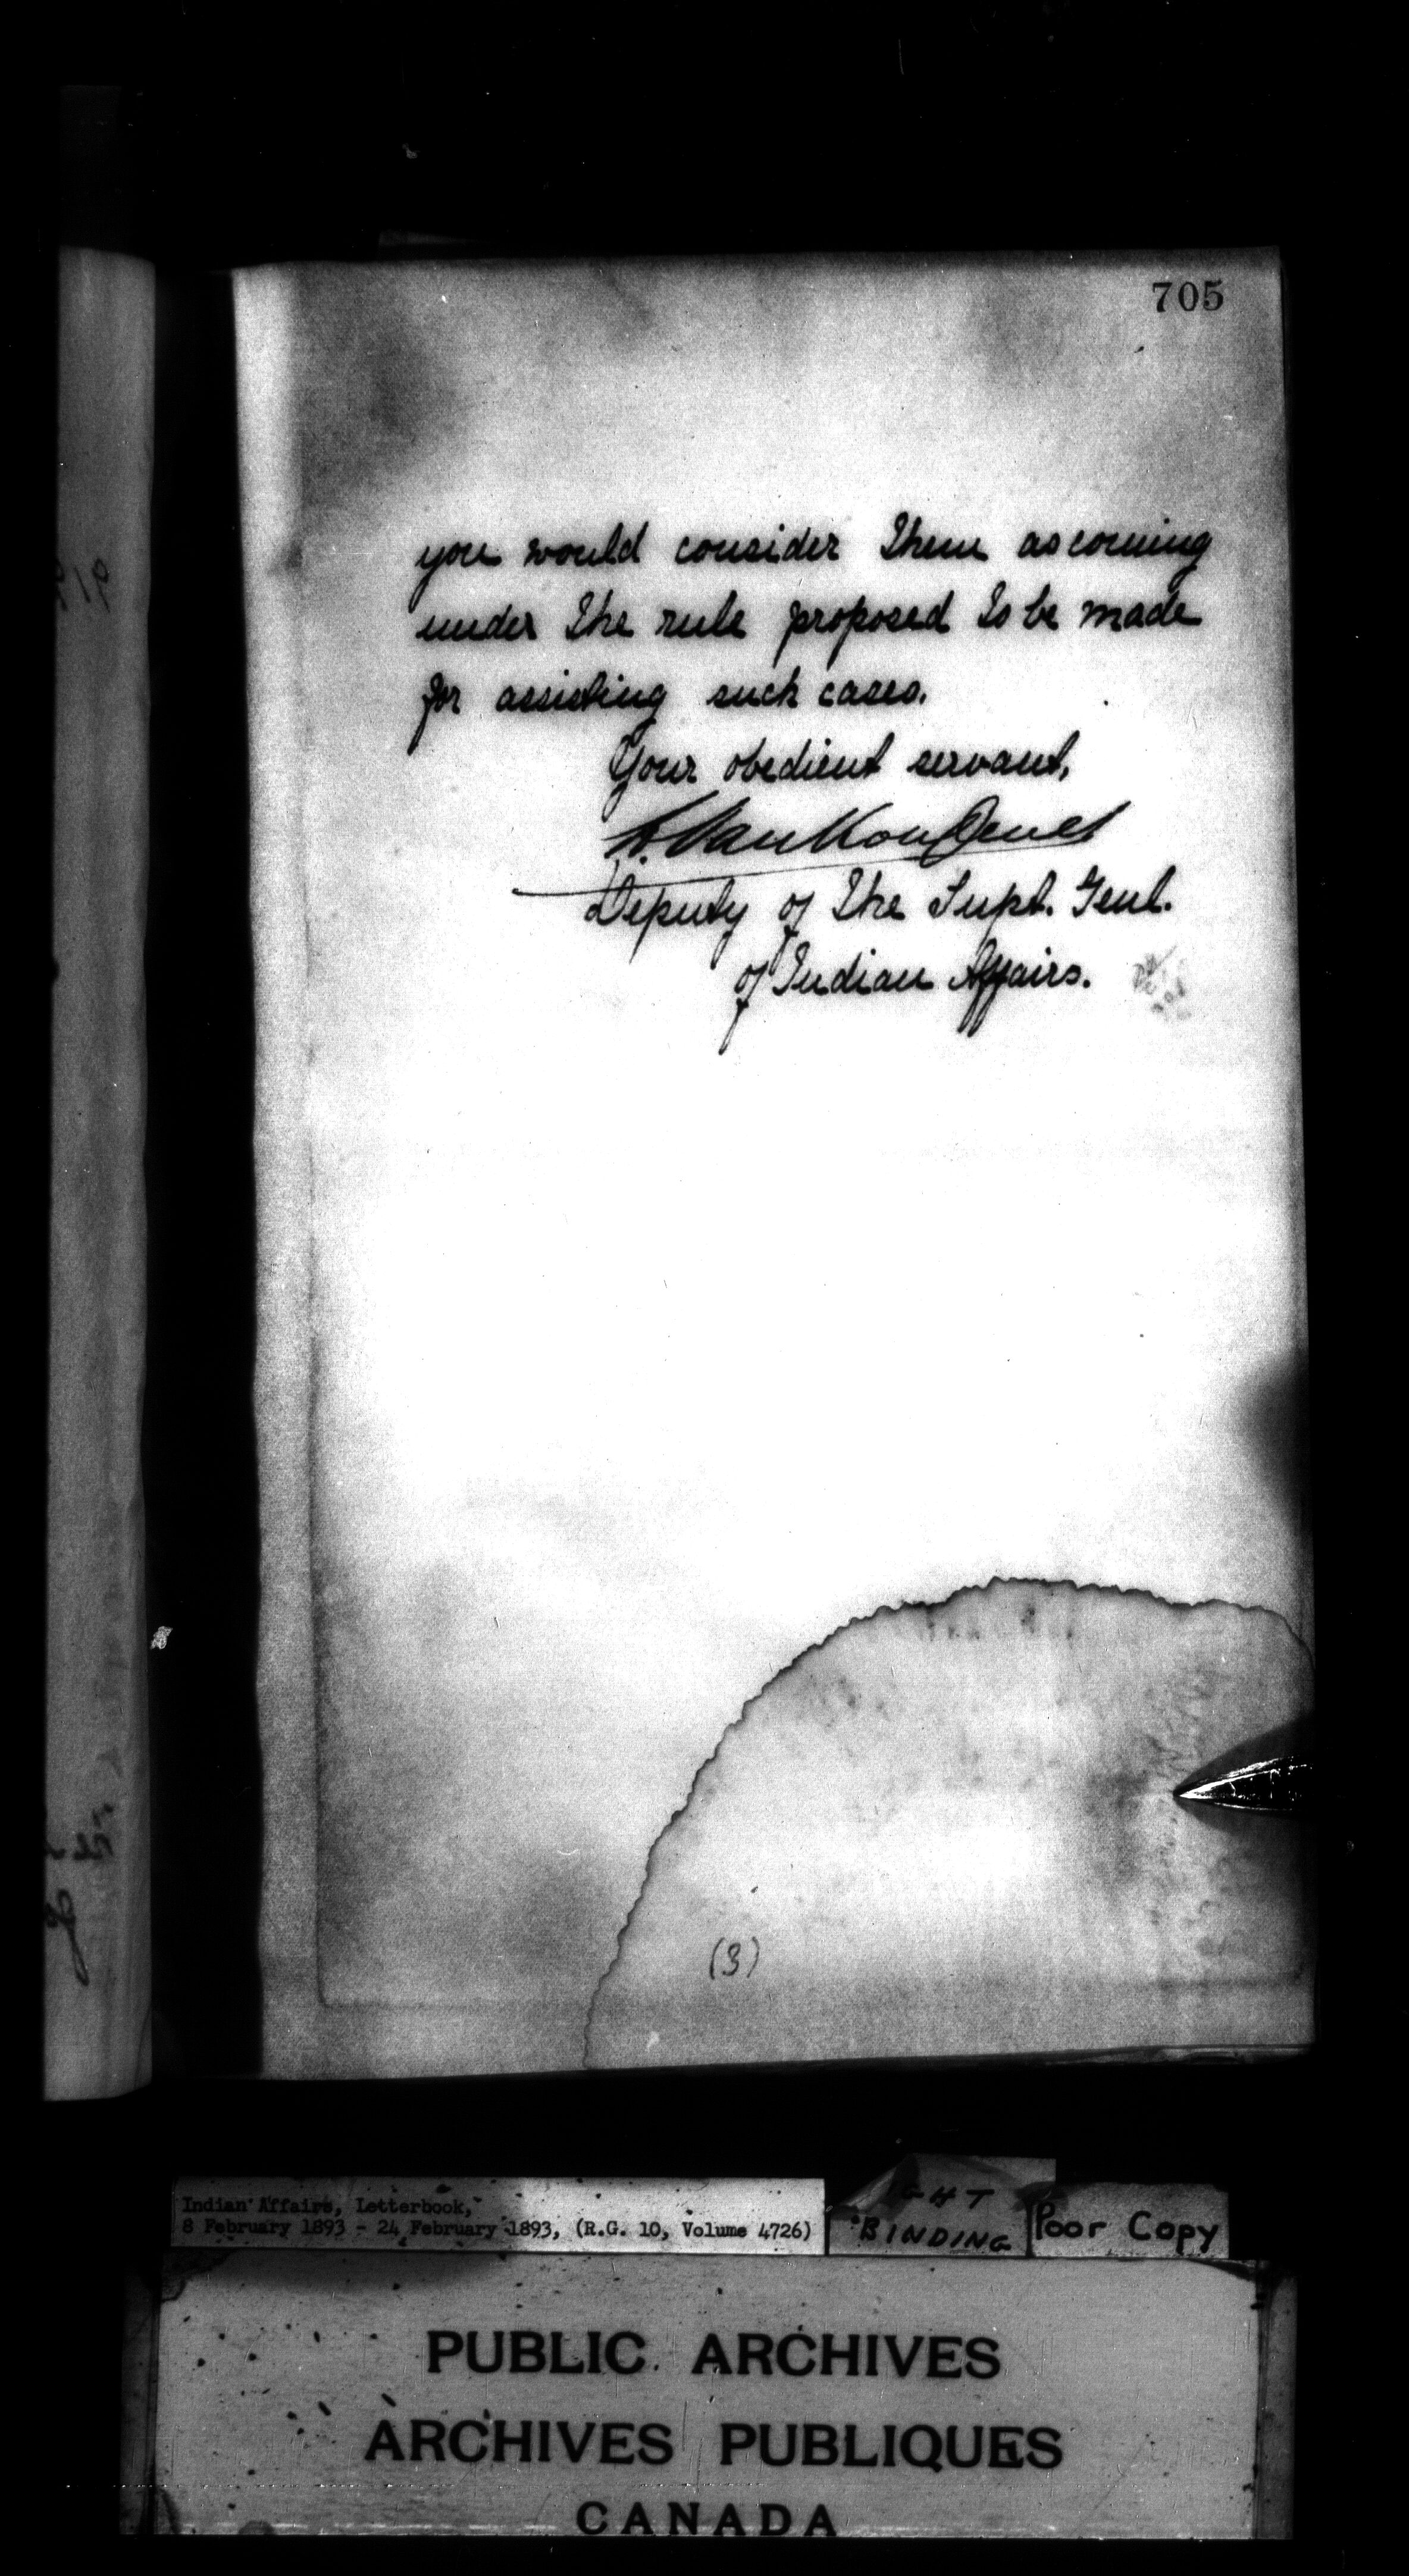 705
you would consider them as coming
under the rule proposed to be made
for assisting such cases.
Your obedient servant,
L. VanKoughnet
Deputy of the Supt. Genl.
of Indian Affairs.
(3)
Indian Affairs, Letterbook,
8 February 1893 - 24 February 1893, (R.G. 10, Volume 4726)
BINDING
Poor Copy
PUBLIC ARCHIVES
ARCHIVES PUBLIQUES
CANADA